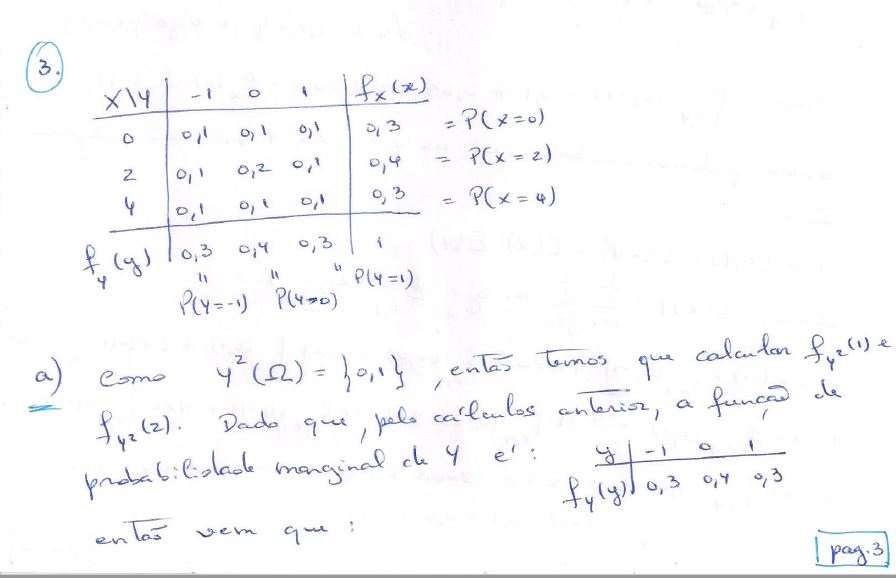 3.
X\Y -1 0 1 f_X(x)
0 0,1 0,1 0,1 0,3 = P(X=0)
2 0,1 0,2 0,1 0,4 = P(X=2)
4 0,1 0,1 0,1 0,3 = P(X=4)
f_Y(y) 0,3 0,4 0,3 1
" " " P(Y=1)
P(Y=-1) P(Y=0)
a) Como Y²(Ω) = {0,1}, então temos que calcular f_Y²(1) e
f_Y²(2). Dado que, pelo cálculos anterior, a função de
probabilidade marginal de Y é: y -1 0 1
f_Y(y) 0,3 0,4 0,3
então vem que:
pag.3